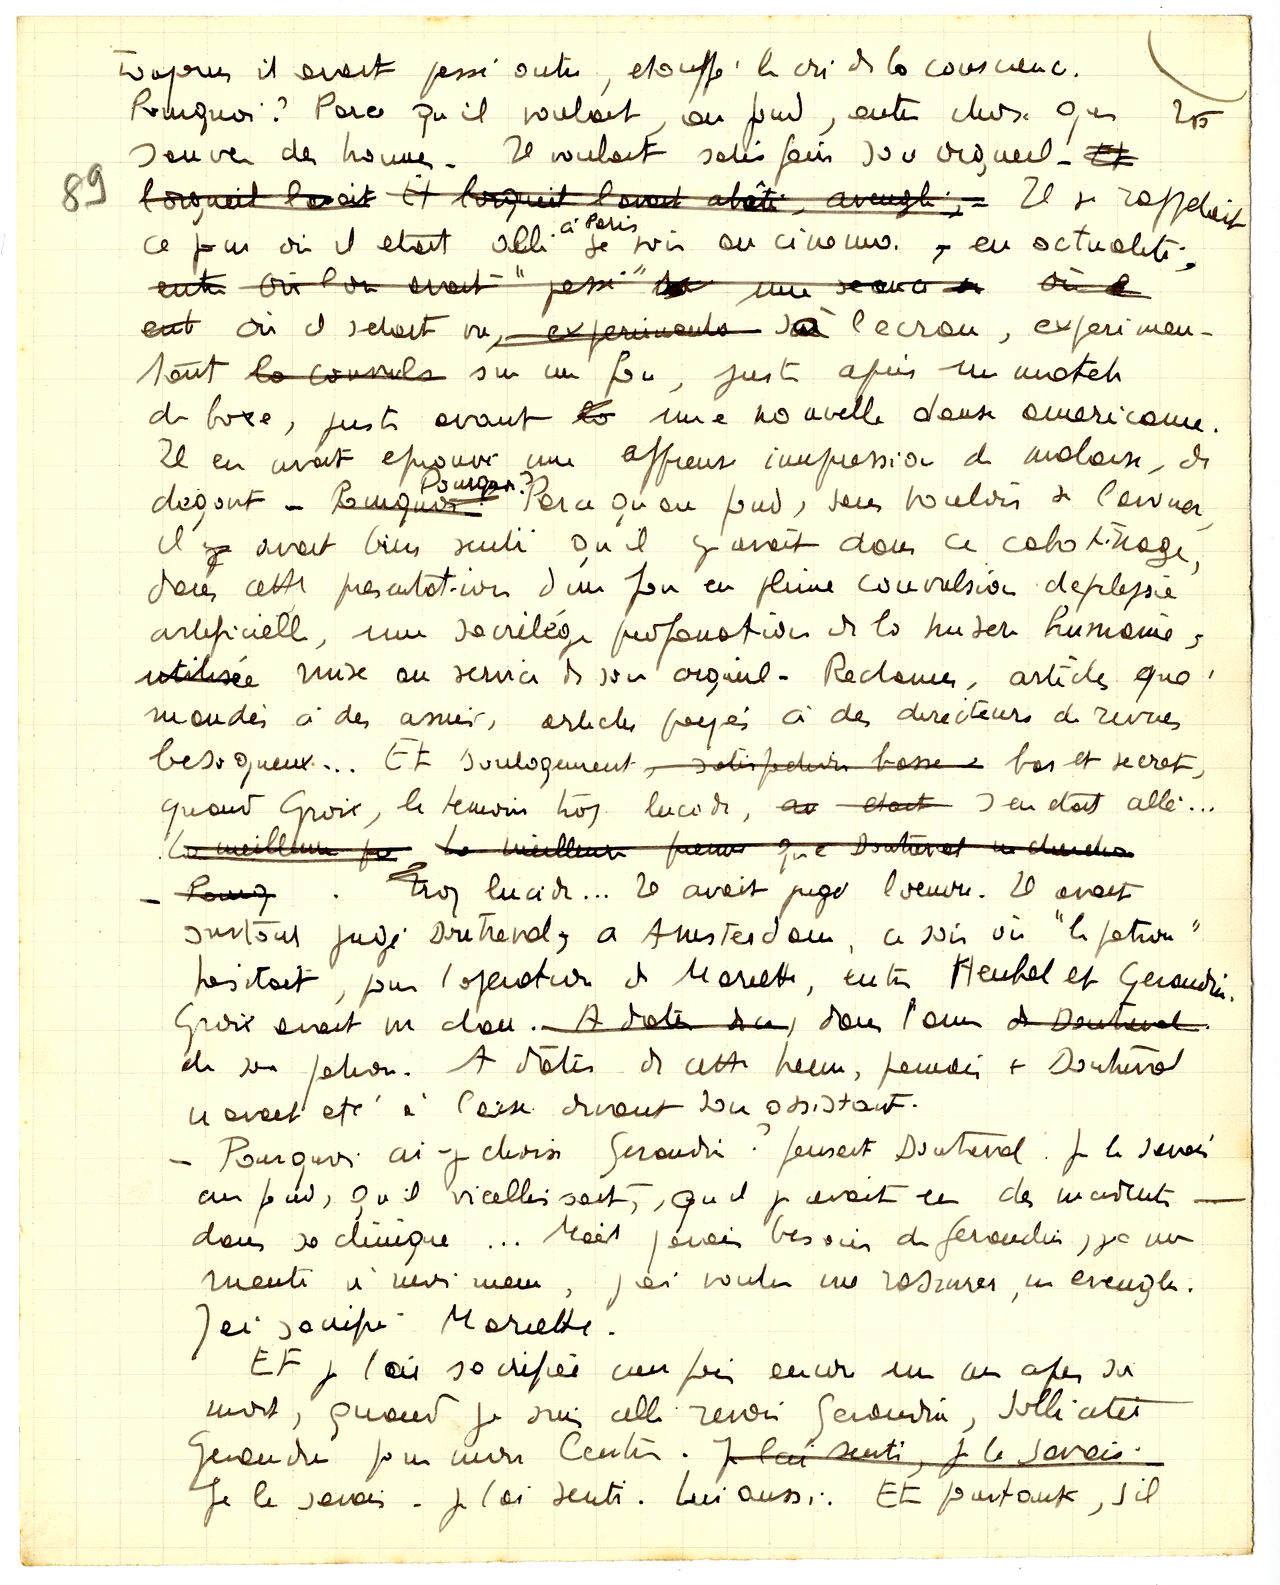 Toujours il avait passé outre, etouffé le cri de la conscience.
Pourquoi? Parce qu'il voulait, au fond, autre chose que
sauver des hommes - Il voulait satisfaire son orgueil - Et
89
l'orgueil l'avait Et l'orgueil l'avait abêti, aveuglé, - Il se rappelait
ce jour où il etait allé à Paris se voir au cinema, en actualité,
entre où l'on avait "passé" une seance où
ent où il setait vu, experimenta sur l'ecran, experimen-
tant la convuls sur un fou, juste après un match
de boxe, juste avant la une nouvelle danse americaine.
Il en avait eprouvé une affreuse impression de malaise, de
degout - Pourquoi? Pourquoi? Parce qu'au fond, sans vouloir se l'avouer,
il y avait bien senti qu'il y avait dans ce cabotinage,
dans cette presentation d'un fou en pleine convulsion depilepsie
artificielle, une sacrilège profanation de la misere humaine,
utilisée mise au service de son orgueil - Reclames, articles qué-
mandés à des amis, articles payés à des directeurs de revues
besogneux... Et soulagement, satisfaction basse e bas et secret,
quand Groix, le temoin trop lucide, s'en etait allé...
La meilleure pr La meilleure preuve que Doutreval ne cherche
- Pourq . trop lucide... Il avait jugé l'oeuvre. Il avait
surtout jugé Doutreval, à Amsterdam, ce soir où "le patron"
hesitait, pour l'operation de Mariette, entre Heubel et Geraudin.
Groix avait vu clair. A dater de ce, dans l'ame de Doutreval.
de son patron. A dater de cette heure, jamais + Doutreval
n'avait eté à l'aise devant son assistant.
- Pourquoi ai-je choisi Geraudin? pensait Doutreval. Je le savais
au fond, qu'il vieillissait, qu'il y avait eu des incidents
dans sa clinique ... Mais j'avais besoin de Geraudin, je me
menti à moi meme, j'ai voulu me rassurer, m'aveugler.
J'ai sacrifié Mariette.
Et je l'ai sacrifiée une fois encore un an apres sa
mort, quand je suis allé revoir Geraudin, solliciter
Geraudin pour mon Centre. Je l'ai senti, je le savais.
Je le savais - je l'ai senti. Lui aussi. Et pourtant, s'il